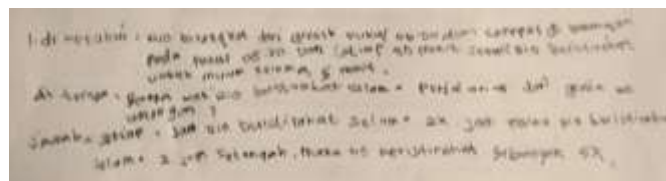 1. di ketahui : Rio berangkat dari gresik pukul 06.00 dan sampai di lamongan
pada pukul 08.30 dan setiap 30 menit sekali Rio beristirahat
untuk minum selama 5 menit.
di tanya : berapa kali Rio beristirahat selama perjalanan dari gresik ke
lamongan ?
jawab : setiap 1 jam Rio beristirahat selama 2x jadi kalau Rio beristirahat
selama 2 jam setengah, maka Rio beristirahat sebanyak 5x.